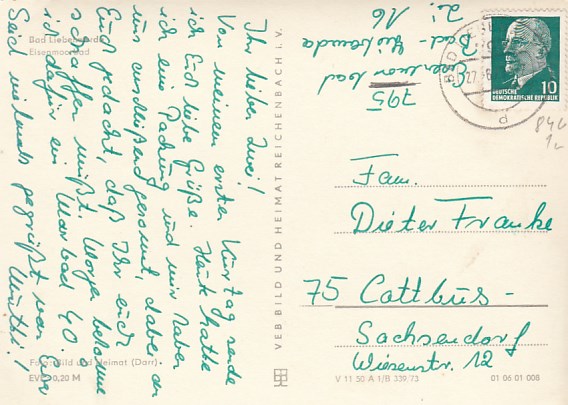 Bad Liebenwerda
Eisenmoorbad
Ihr lieben Zwei!
Von meinem ersten Kurtag sende
ich Euch liebe Grüße. Heute hatte
ich eine Packung und wir haben
uns anschließend gesonnt, dabei an
Euch gedacht, daß Ihr euch
schaffen müßt. Morgen bekomme
ich dafür ein Moorbad 40.
Seid vielmals gegrüßt von Eurer
Mutti!
Foto: Bild und Heimat (Darr)
EVP 0,20 M
VEB BILD UND HEIMAT REICHENBACH I. V.
795
Eisenmoorbad
Bad-Liebenwerda
Zi. 16
BAD
27.
d
10
DEUTSCHE
DEMOKRATISCHE REPUBLIK
846
Fam.
Dieter Franke
75 Cottbus-
Sachsendorf
Wiesenstr. 12
V 11 50 A 1/B 339/73
01 06 01 008